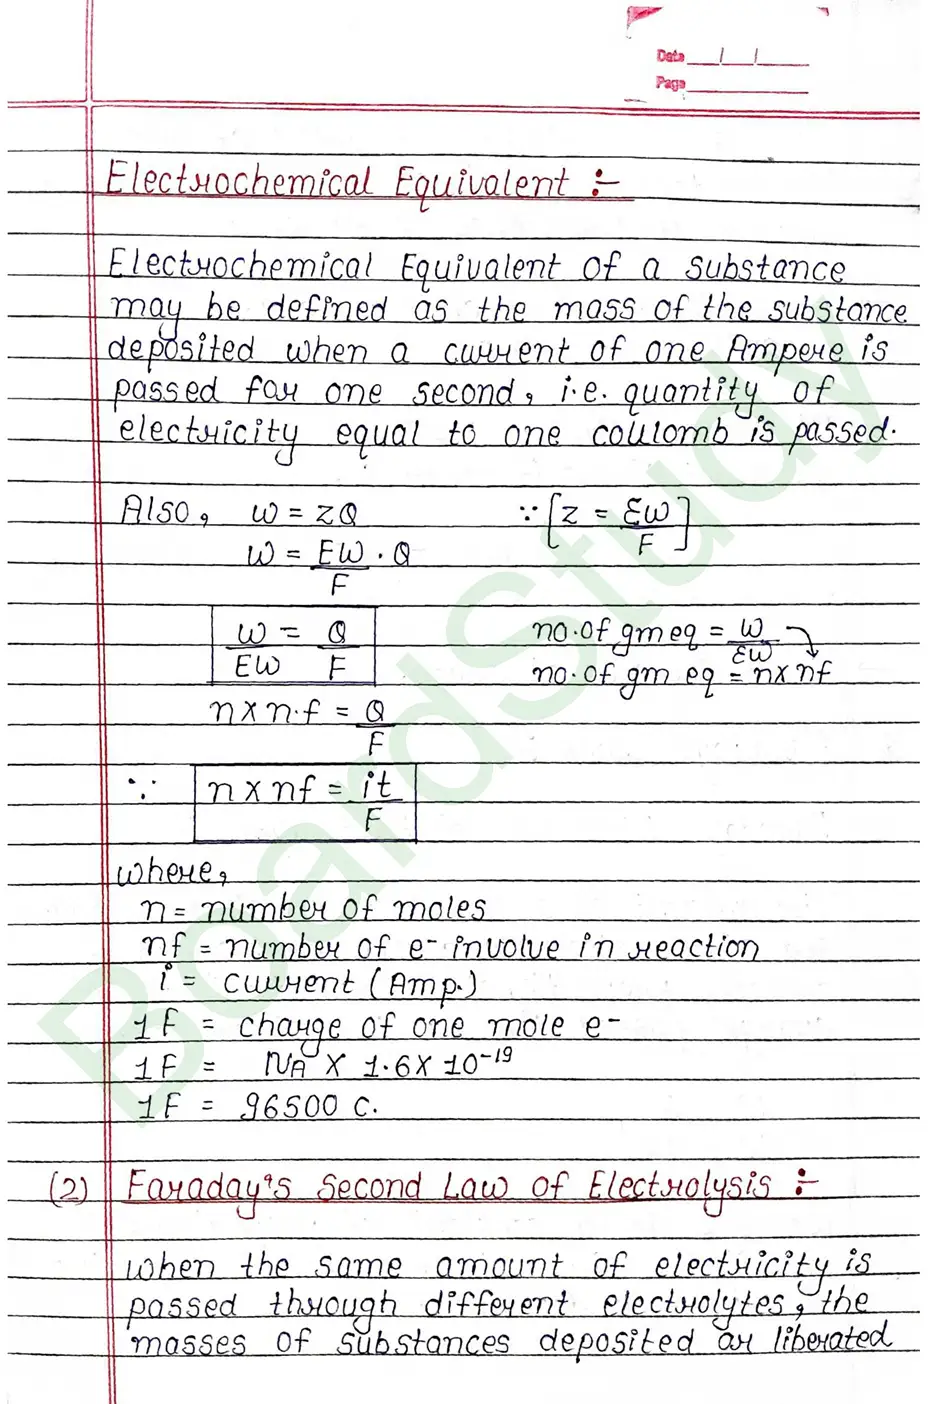 Date
Page
Electrochemical Equivalent :-
Electrochemical Equivalent of a substance
may be defined as the mass of the substance
deposited when a current of one Ampere is
passed for one second, i.e. quantity of
electricity equal to one coulomb is passed.
Also, w = ZQ ∵ [Z = EW/F]
w = EW/F . Q
w/EW = Q/F no. of gm eq = w/EW
no. of gm eq = n x nf
n x n.f = Q/F
∵ n x nf = it/F
where,
n = number of moles
nf = number of e- involve in reaction
i = current (Amp.)
1F = charge of one mole e-
1F = NA x 1.6 x 10^-19
1F = 96500 C.
(2) Faraday's Second Law of Electrolysis :-
when the same amount of electricity is
passed through different electrolytes, the
masses of substances deposited or liberated
BoardStudy